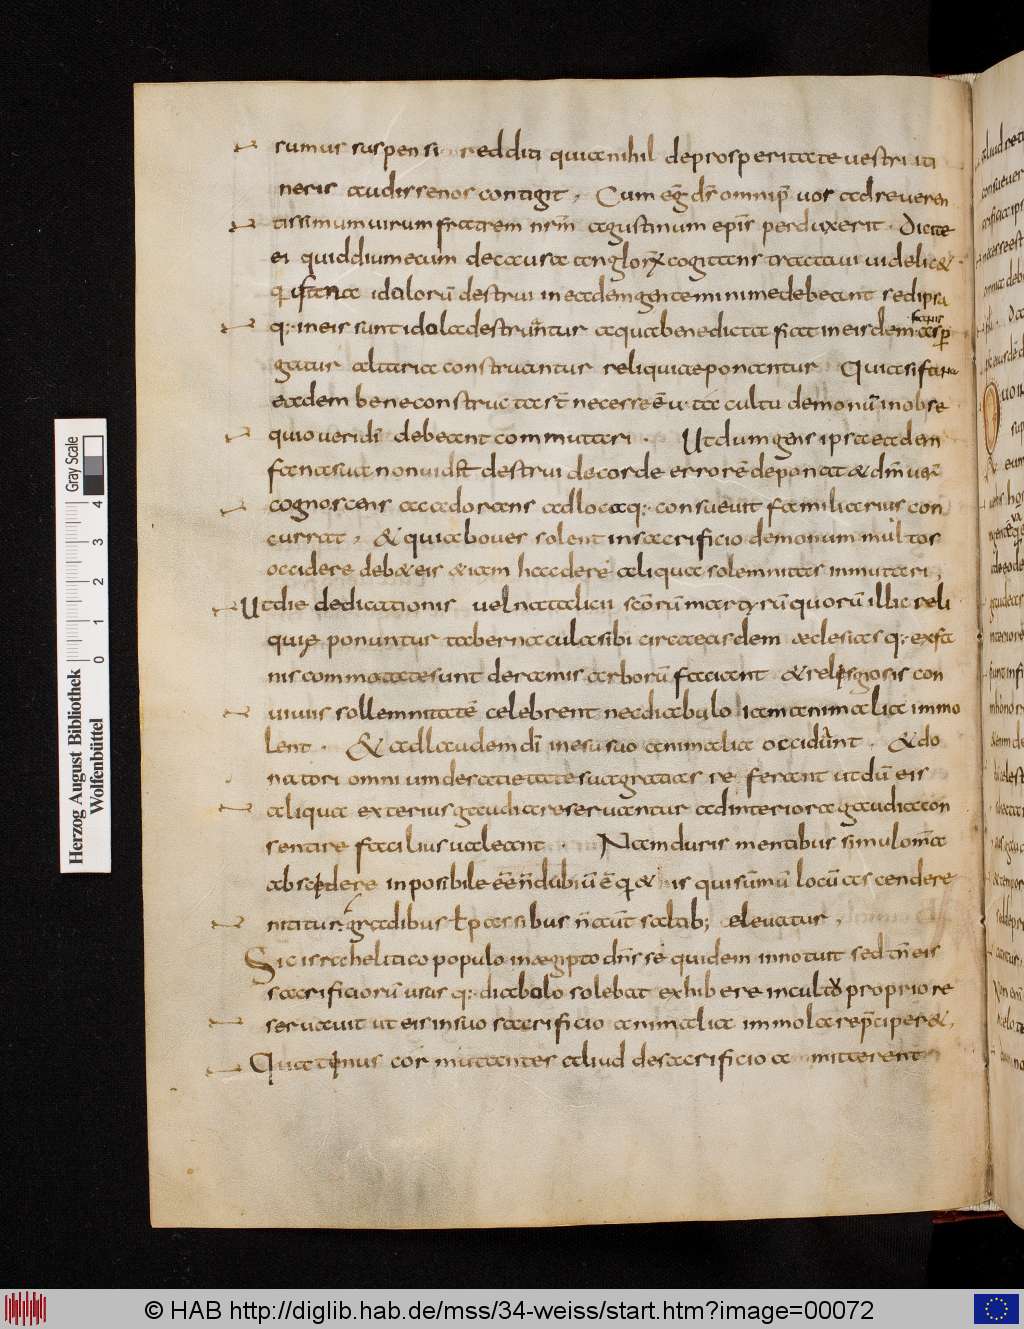 sumus suspensi redditi quia nihil deprosperitate vestri iti
neris audisse nos contigit, Cum eḡ ds̄ omnip̄ vos adreveren
tissimum virum fratrem nrm̄ agustinum epis̄ perduxerit. Dicite
ei quid diu mecum decausa anglorꝝ cogitans tractavi videlic&
q̄ı fana idolorū destrui in eadem gente minime debeant sed ipsa
q: in eis sunt idola destruantur aqua benedicta fiat in eisdem fanis asp
gatur altaria construantur reliquiae ponantur Quia si fana
eadem bene constructa st̄ necesse ē ut a cultu demonū in obse
quio veri dı̄ debeant commutari. Ut dum gens ipsa eadem
fana sua non vid& destrui de corde errorē deponat & dm̄ verū
cognoscens ac adorans ad loca q: consuevit familiarius con
currat, & quia boves solent in sacrificio demonum multos
occidere deb& eis &iam hac de re aliqua solemnitas inmutari,
Ut die dedicationis vel natalicii scōrū martyrū quorū illic reli
quię ponuntur tabernacula sibi circa easdem aeclesias q: ex fa
nis commutate sunt de ramis arborū faciant & religiosis con
viviis sollemnitatē celebrent nec diabulo iam animalia immo
lent. & ad laudem dı̄ in esu suo animalia occidunt. & do
natori omnium de satietate sua gratias referant ut dū eis
aliqua exterius gaudia reservantur ad interiora gaudia con
sentire facilius valeant. Nam duris mentibus simul om̄a
abscidere inposibile eē n̄ dubiū ē q̄ & is qui sūmū locū ascendere
nititur gradibus ł passibus n̄ aut̄ saltib; elevatur,
Sic israhelitico populo in aegipto dn̄s se quidem innotuit sed tn̄ eis
sacrificiorū usus q: diabolo solebat exhibere in cultū proprio re
servavit ut eis in suo sacrificio animalia immolare p̄ciper&,
Quatenus cor mutantes aliud de sacrificio a mitterent
Herzog August Bibliothek
Wolfenbüttel
0 1 2 3 4
Gray Scale
© HAB http://diglib.hab.de/mss/34-weiss/start.htm?image=00072